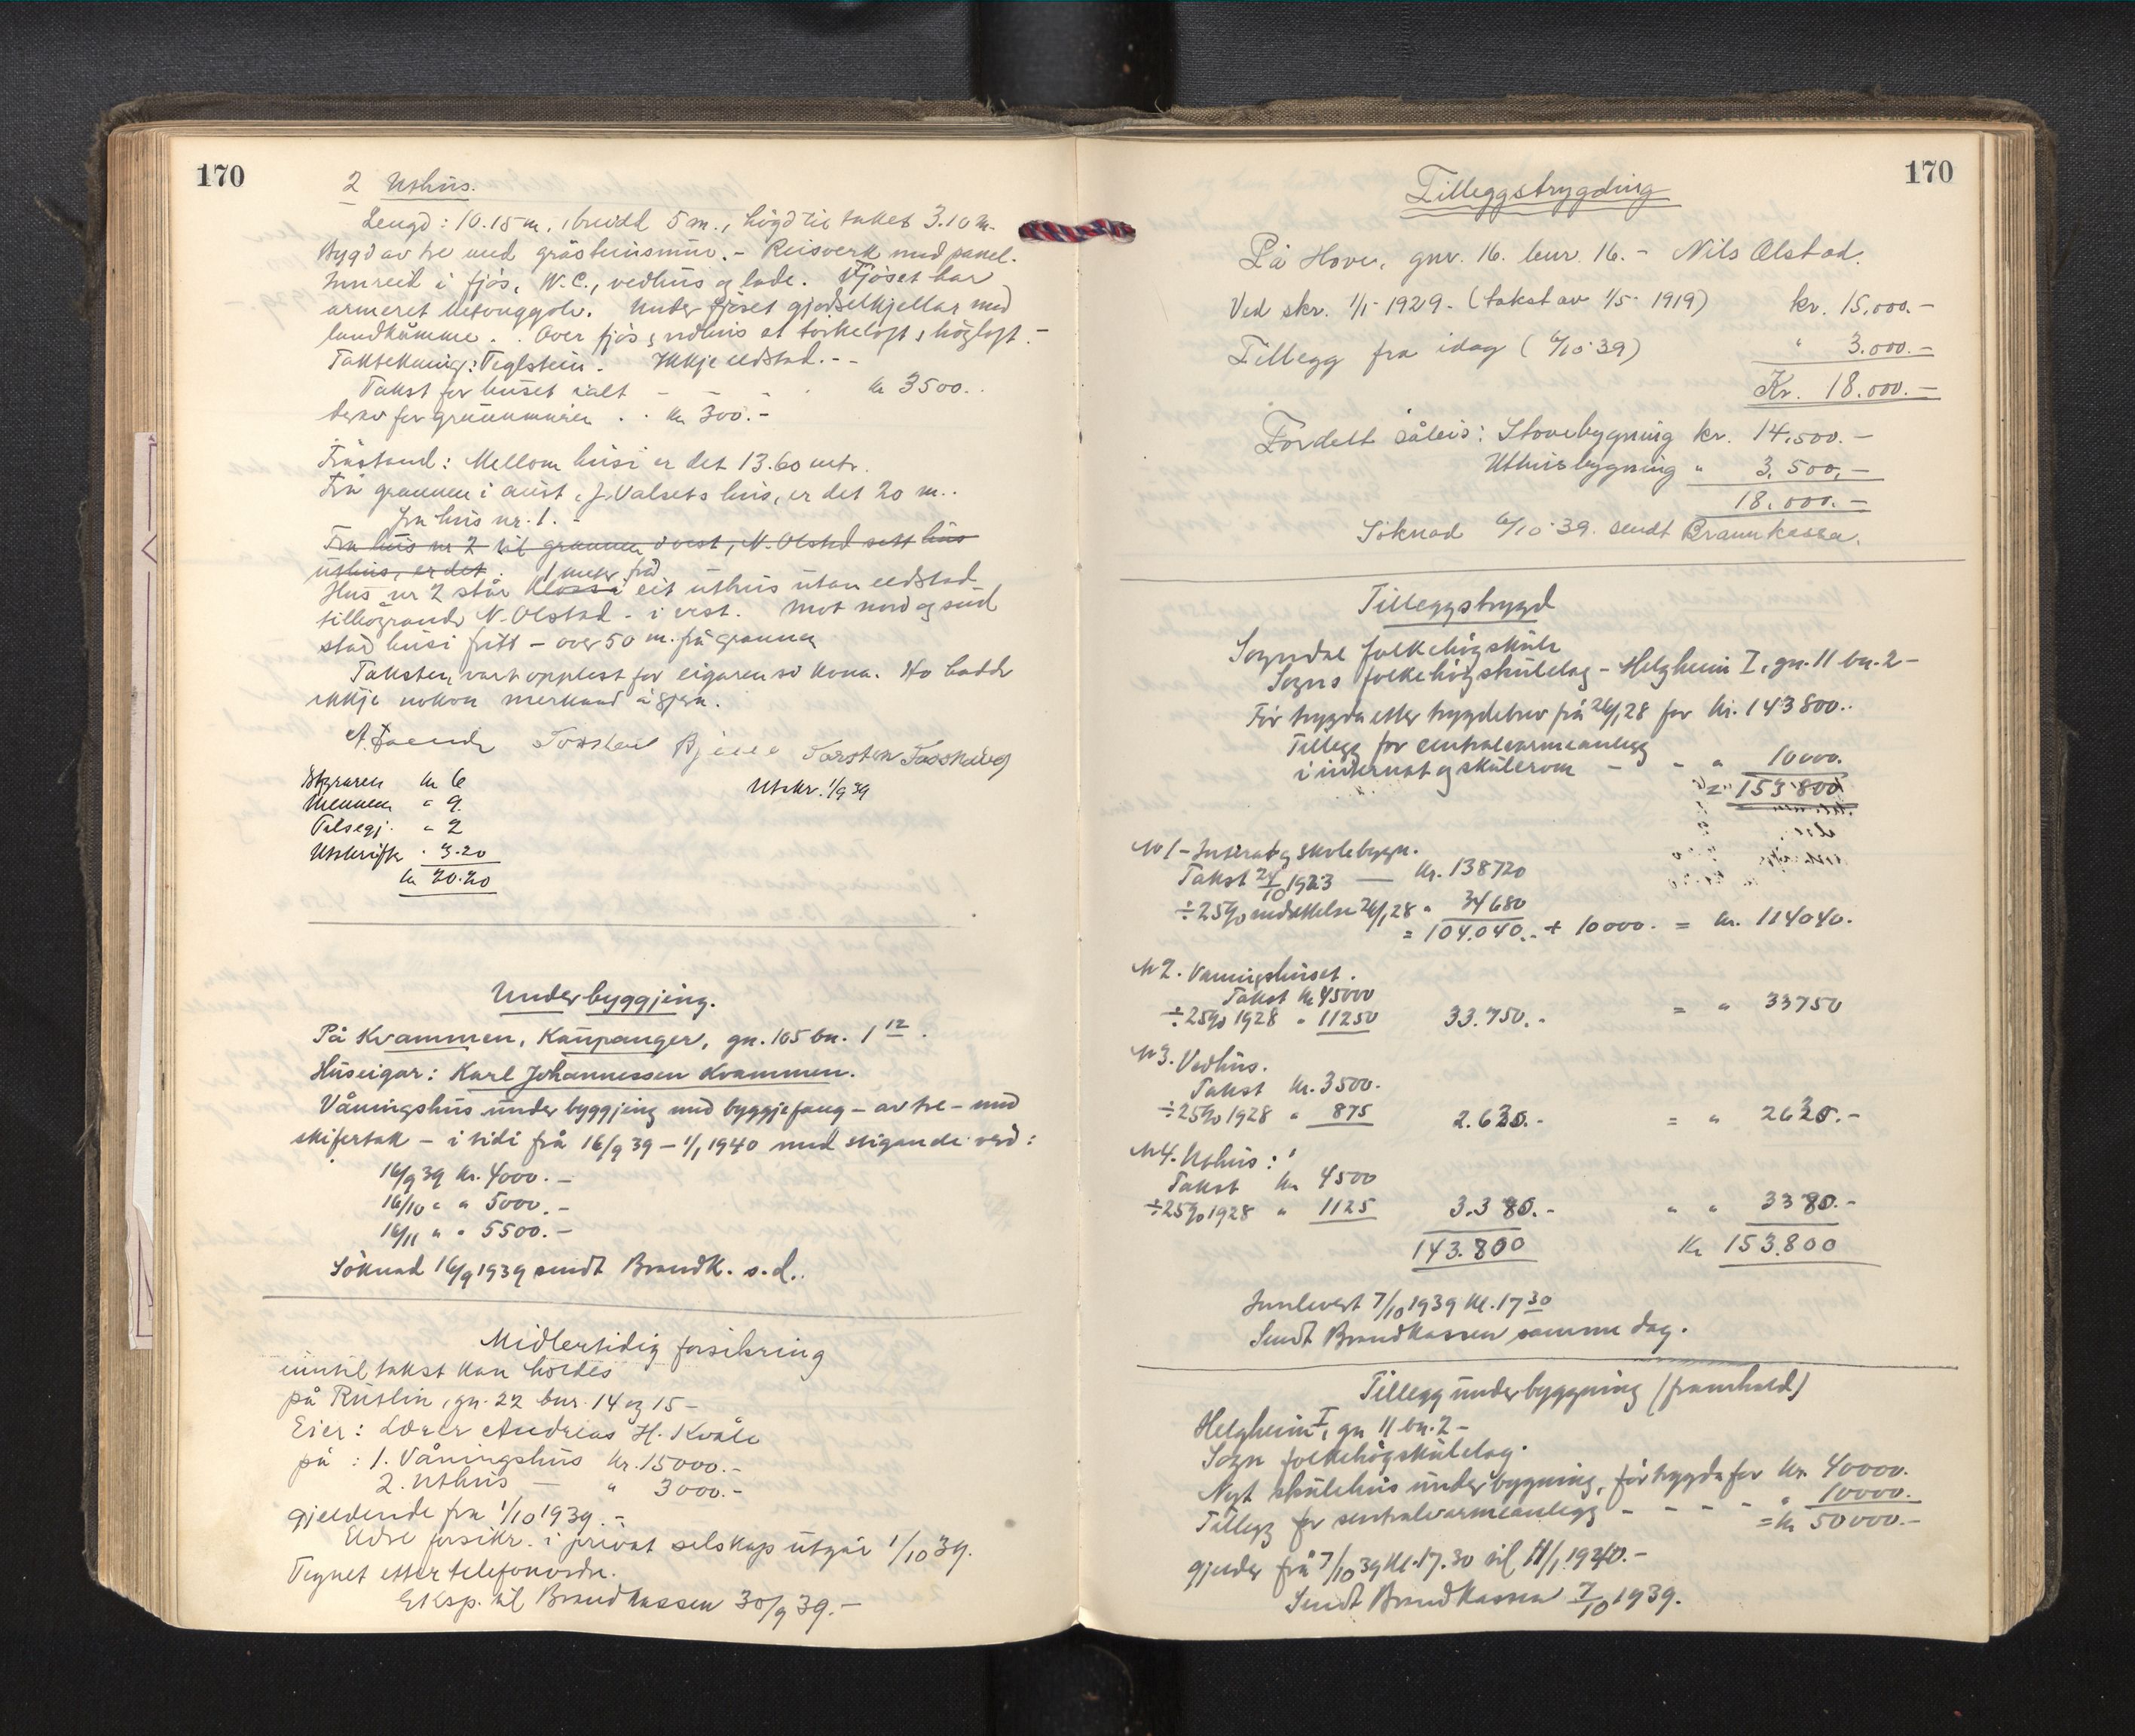 170
2 Uthus.
Lengd: 10.15 m, breidd 5 m., högd til taket 3.10 m.
Bygd av tre med gråsteinsmur. - Reisverk med panel.
Innreid i fjös, W.C., vedhus og lade. Fjöset har
armeret betonggolv. Under fjöset gjödselkjellar med
landkumme. Over fjös, vedhus et torkeloft, höyloft. -
Taktekking: Teglstein. Ikkje eldstad. - -
Takst for huset ialt - - - kr 3500.
derav for grunnmuren . . kr 300.-
Fråstand: Mellom husi er det 13.60 mtr.
Frå grannen i aust, J. Valsets hus, er det 20 m..
fra hus nr. 1. -
Fra hus nr 2 til grannen i vest, N. Olstad sitt hus
uthus, er det . 1 meter frå
Hus nr 2 står klossi eit uthus utan eldstad
tilhöyrande N. Olstad - i vest. Mot nord og sud
står husi fritt - over 50 m. frå grannar
Taksten vart opplest for eigaren si kona. Ho hadde
ikkje nokon merknad å gjera.
Torstein Bjelle Torsten
Styraren kr 6
Mennene " 9
Talsegj. " 2
Utskrift " 3.20
kr 20.20
Utskr. 1/9 39
Underbyggjing.
På Kvammen, Kaupanger, gn. 105 bn. 1 12.
Huseigar: Karl Johannessen Kvammen.
Våningshus under byggjing med byggjefang - av tre - med
skifertak - i tidi frå 16/9 39 - 1/1 1940 med stigande verd:
16/9 39 kr. 4000. -
16/10 " " 5000. -
16/11 " " 5500. -
Söknad 16/9 1939 sendt Brandk. s.d..
Midlertidig forsikring
inntil takst kan holdes
på Rutlin, gn. 22 bnr. 14 og 15 -
Eier: Lærer Andreas H. Kvåle
på : 1. Våningshus kr. 15000.-
2. Uthus - " 3000.-
gjeldende fra 1/10 1939. -
Eldre forsikr. i privat selskap utgår 1/10 39.
Tegnet etter telefonordre.
Eksp. til Brandkassen 30/9 39. -
170
Tilleggstrygding
På Hove, gnr. 16. bnr. 16. - Nils Olstad.
Ved skr. 1/1 - 1929. (takst av 1/5 - 1919) kr. 15.000.-
Tillegg fra idag (6/10 39) " 3.000.-
Kr. 18.000.-
Fordelt såleis: Stovebygning kr. 14.500. -
Uthusbygning " 3.500.-
18.000.-
Söknad 6/10 39. sendt Brannkassa.
Tilleggstrygd
Sogndal folkehögskule
Sogns folkehögskulelag - Helgheim I, gn. 11 bn. 2 -
För trygda etter trygdebrev frå 26/1 28 for kr. 143800..
Tillegg for sentralvarmeanlegg
i internat og skulerom - - " 10000.
= 153800
Nr 1 - Internat og skolebygn.
Takst 24/10 1923 - kr. 138720
÷ 25% nedsettelse 26/1 28 " 34680
= 104.040.- + 10000. = kr. 114040.
Nr 2. Vaaningshuset.
Takst kr 45000
÷ 25% 1928 " 11250 33.750.- = " 33750
Nr 3. Vedhus.
Takst kr. 3500.
÷ 25% 1928 " 875 2.630.- = " 2630.-
Nr 4. Uthus:
Takst kr 4500
÷ 25% 1928 " 1125 3.380.- " " 3380.-
143.800 Kr 153.800
Innlevert 7/10 1939 kl. 17 30
Sendt Brandkassen samme dag.
Tillegg underbyggning (framhald)
Helgheim I, gn 11 bn. 2 -
Sogn folkehögskulelag.
Nytt skulehus under bygning, för trygda for kr. 40000.
Tillegg for sentralvarmeanlegg - - - - " 10000.
= kr 50000.-
gjelder frå 7/10 39 kl. 17.30 til 11/1 1940.-
Sendt Brandkassen 7/10 1939.